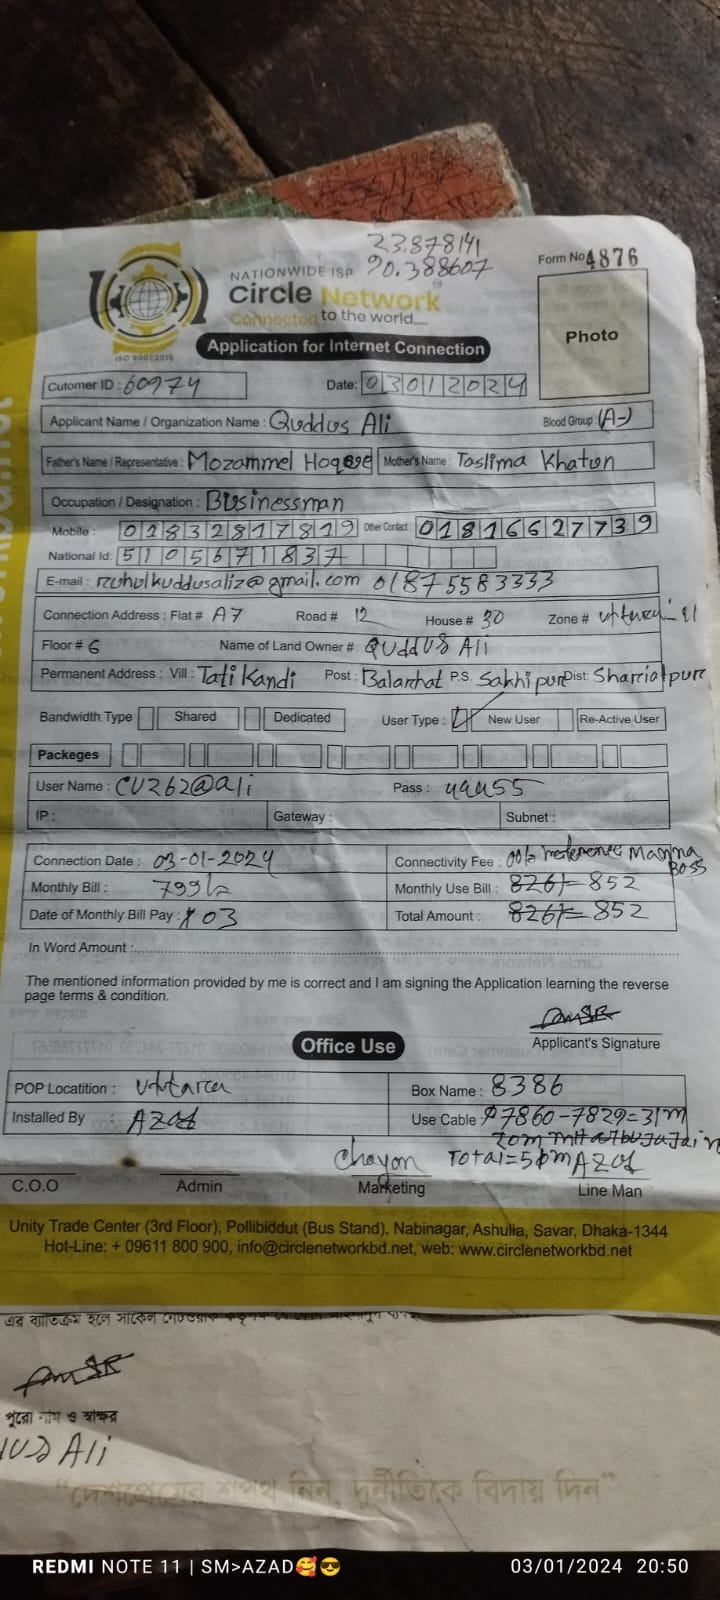 23.878141
90.388607
Form No 4876
NATIONWIDE ISP
Circle Network
Connected to the world.....
ISO 9001:2015
Application for Internet Connection
Photo
Cutomer ID : 60974 Date: 03012024
Applicant Name / Organization Name : Quddus Ali Blood Group (A-)
Father's Name / Representative : Mozammel Hoque Mother's Name : Taslima Khatun
Occupation / Designation : Businessman
Mobile : 01832817819 Other Contact : 01816627739
National Id: 5105671837
E-mail : ruhulkuddusali2@gmail.com 01875583333
Connection Address : Flat # A7 Road # 12 House # 30 Zone #
Floor # 6 Name of Land Owner # QUddUS Ali
Permanent Address : Vill : Tati Kandi Post : Balarhat P.S. Sakhipur Dist: Shariatpure
Bandwidth Type Shared Dedicated User Type : New User Re-Active User
Packeges
User Name : CV262@ali Pass : 44455
IP : Gateway : Subnet :
Connection Date : 03-01-2024 Connectivity Fee : Manna Boss
Monthly Bill : 799/= Monthly Use Bill : 826/= 852
Date of Monthly Bill Pay : 03 Total Amount : 826/= 852
In Word Amount :
The mentioned information provided by me is correct and I am signing the Application learning the reverse
page terms & condition.
Applicant's Signature
Office Use
POP Locatition : Uttara Box Name : 8386
Installed By : AZad Use Cable : 7860-7829=31m
Chayon Total=51m AZad
C.O.O Admin Marketing Line Man
Unity Trade Center (3rd Floor), Pollibiddut (Bus Stand), Nabinagar, Ashulia, Savar, Dhaka-1344
Hot-Line: + 09611 800 900, info@circlenetworkbd.net, web: www.circlenetworkbd.net
পুরো নাম ও স্বাক্ষর
Ali
“দেশপ্রেমের শপথ নিন, দুর্নীতিকে বিদায় দিন”
REDMI NOTE 11 | SM>AZAD🥰😎 03/01/2024 20:50